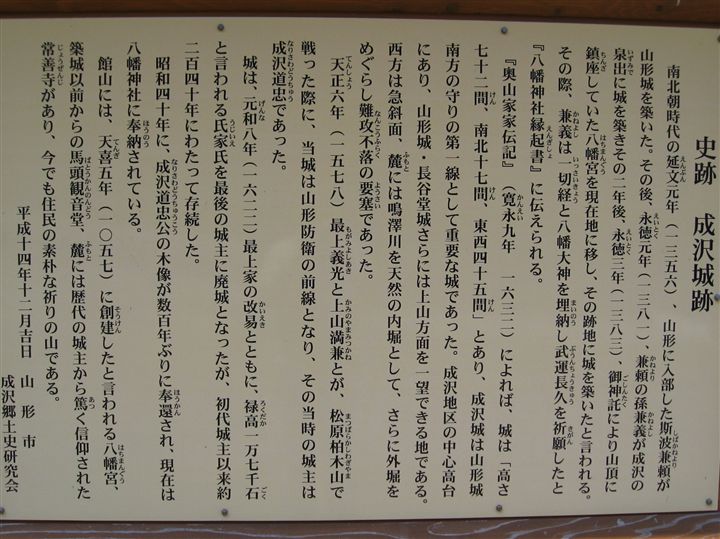 史跡 成沢城跡
南北朝時代の延文元年(一三五六)、山形に入部した斯波兼頼が
山形城を築いた。その後、永徳元年(一三八一)、兼頼の孫兼義が成沢の
泉出に城を築きその二年後、永徳三年(一三八三)、御神託により山頂に
鎮座していた八幡宮を現在地に移し、その跡地に城を築いたと言われる。
その際、兼義は一切経と八幡大神を埋納し武運長久を祈願したと
『八幡神社縁起書』に伝えられる。
『奥山家家伝記』(寛永九年 一六三二)によれば、城は「高さ
七十二間、南北十七間、東西四十五間」とあり、成沢城は山形城
南方の守りの第一線として重要な城であった。成沢地区の中心高台
にあり、山形城・長谷堂城さらには上山方面を一望できる地である。
西方は急斜面、麓には鳴澤川を天然の内堀として、さらに外堀を
めぐらし難攻不落の要塞であった。
天正六年(一五七八)最上義光と上山満兼とが、松原柏木山で
戦った際に、当城は山形防衛の前線となり、その当時の城主は
成沢道忠であった。
城は、元和八年(一六二二)最上家の改易とともに、禄高一万七千石
と言われる氏家氏を最後の城主に廃城となったが、初代城主以来約
二百四十年にわたって存続した。
昭和四十年に、成沢道忠公の木像が数百年ぶりに奉還され、現在は
八幡神社に奉納されている。
館山には、天喜五年(一〇五七)に創建したと言われる八幡宮、
築城以前からの馬頭観音堂、麓には歴代の城主から篤く信仰された
常善寺があり、今でも住民の素朴な祈りの山である。
平成十四年十二月吉日 山形市
成沢郷土史研究会